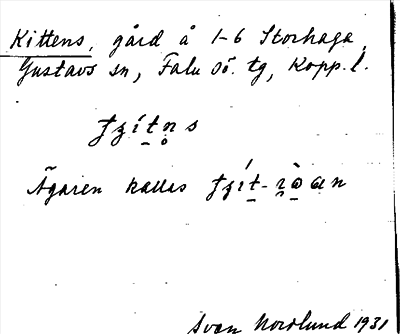 Kittens, gård å 1-6 Storhaga,
Gustavs sn, Falu sö. tg, Kopp. l.
Ägaren kallas
Sven Norlund 1931